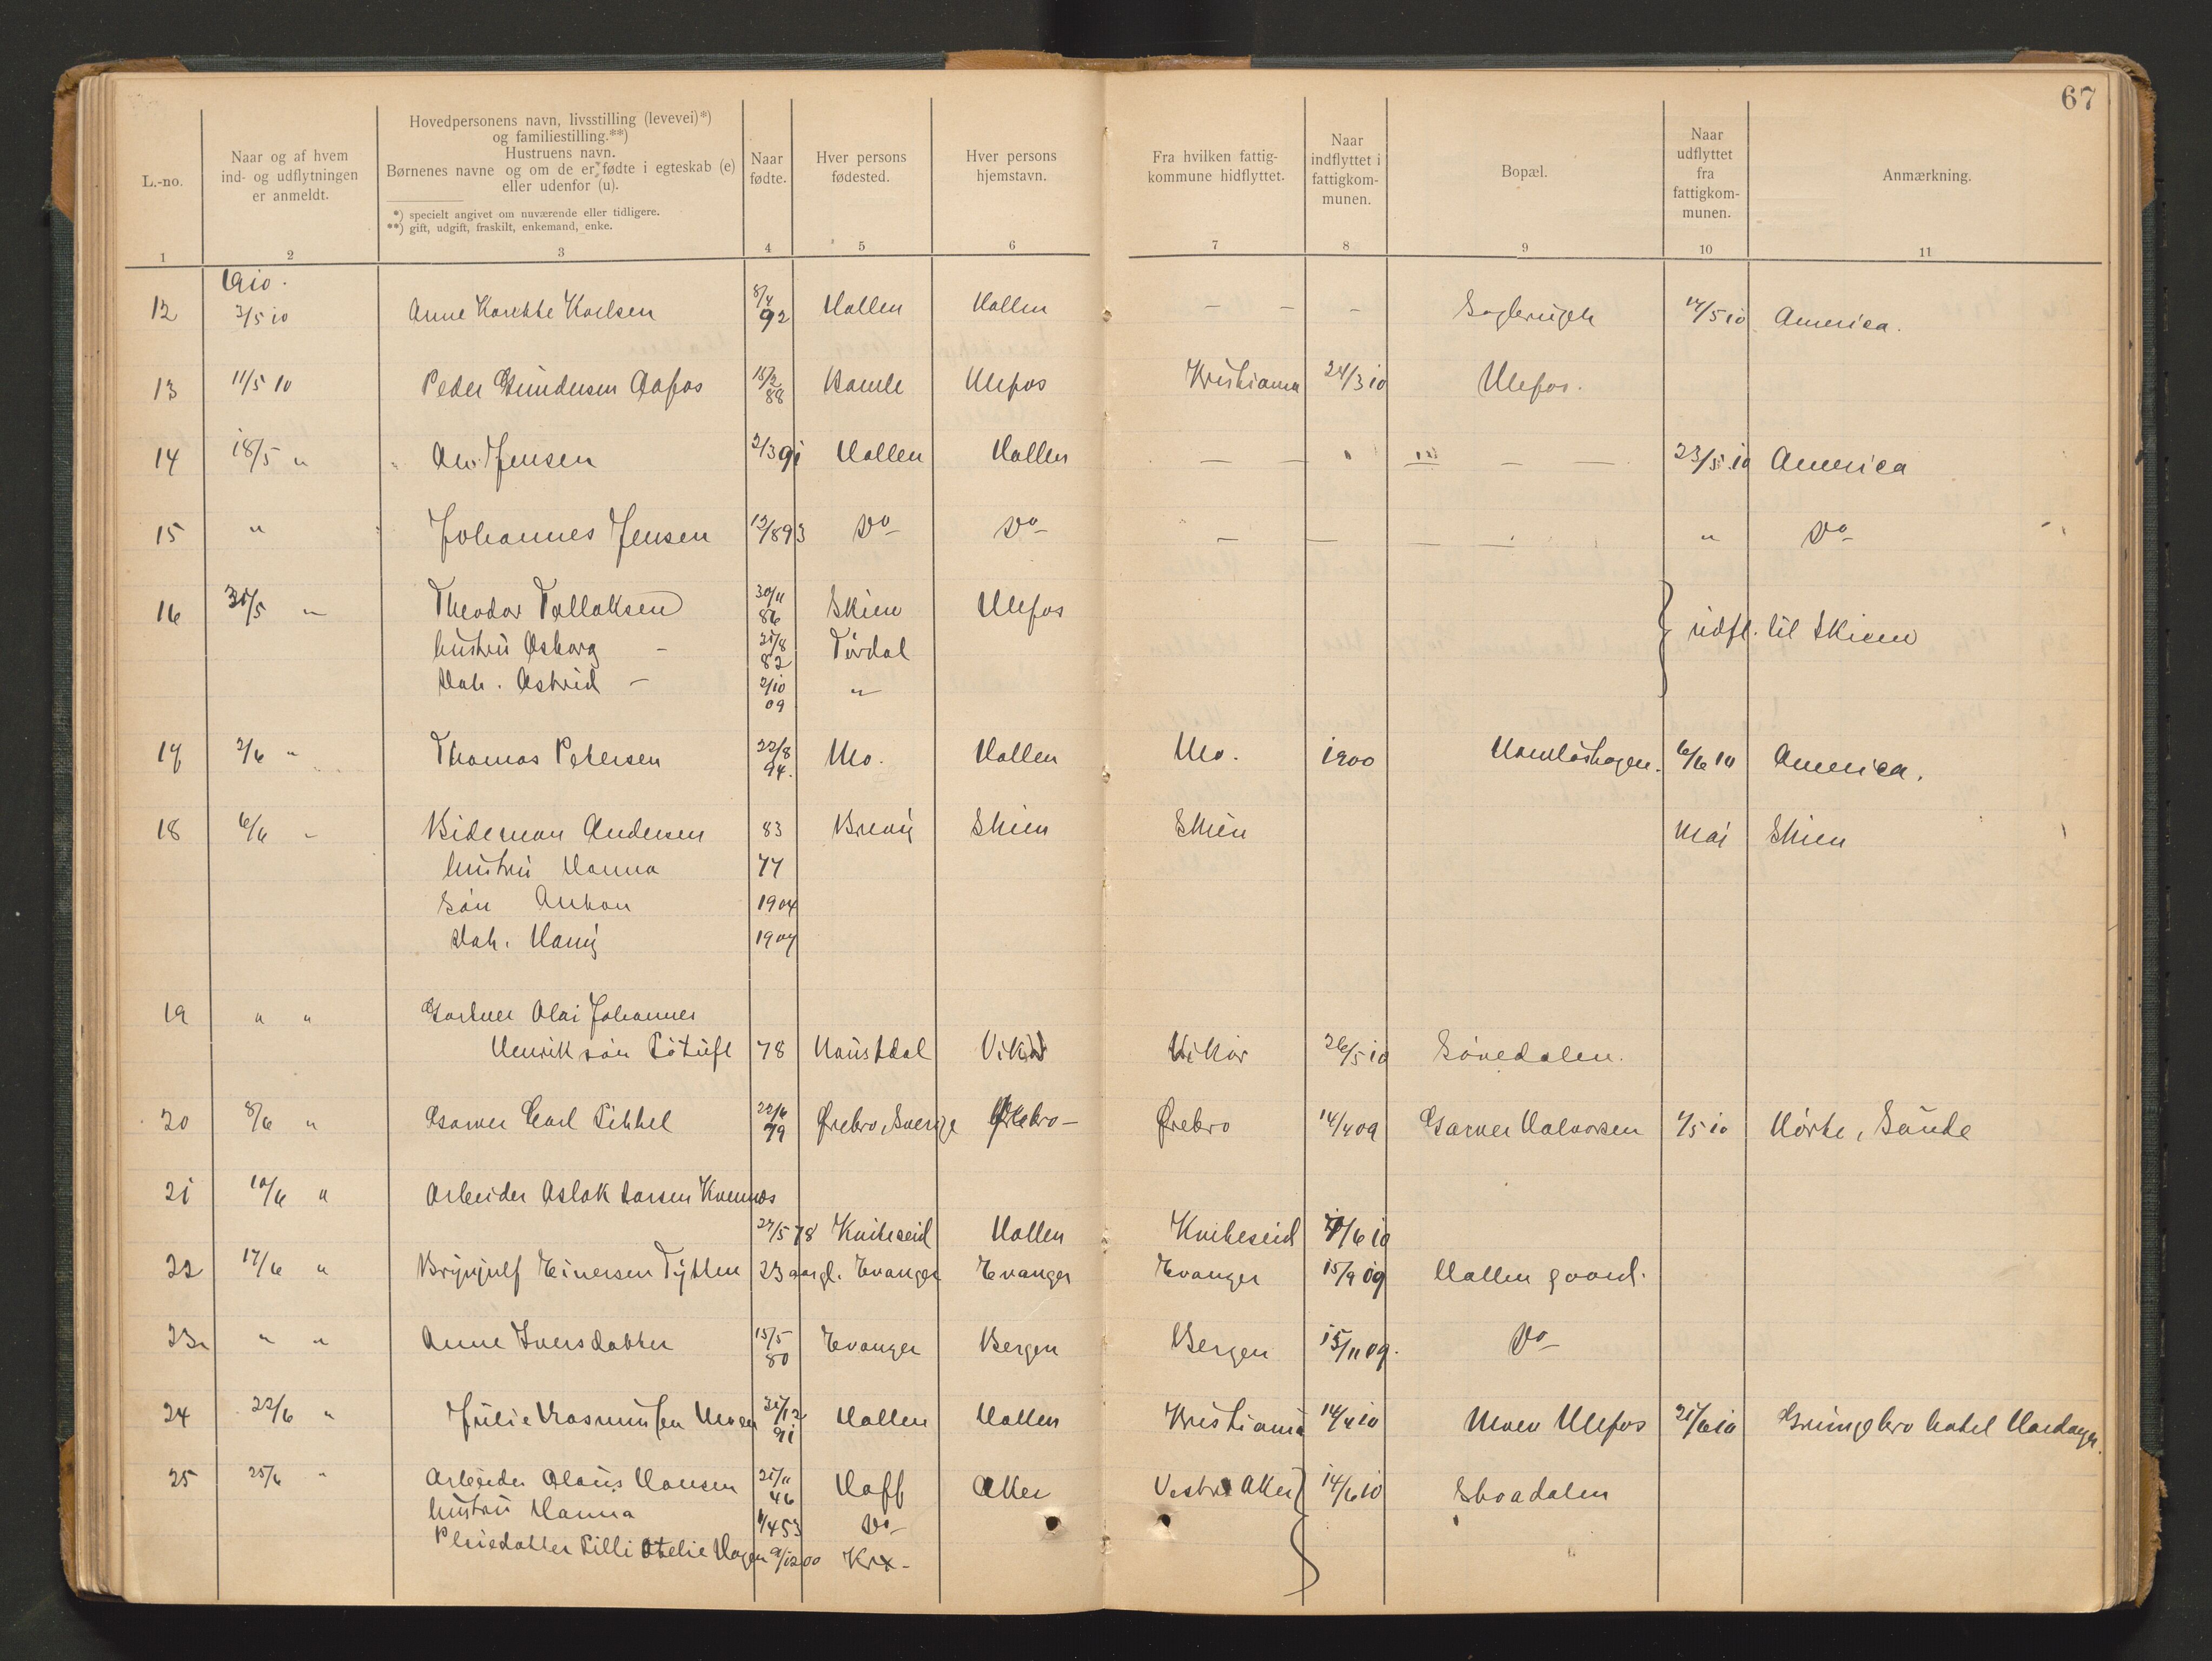 67
L.-no.
Naar og af hvem
ind- og udflytningen
er anmeldt.
Hovedpersonens navn, livsstilling (levevei)*)
og familiestilling.**)
Hustruens navn.
Børnenes navne og om de er fødte i egteskab (e)
eller udenfor (u).
*) specielt angivet om nuværende eller tidligere.
**) gift, udgift, fraskilt, enkemand, enke.
Naar
fødte.
Hver persons
fødested.
Hver persons
hjemstavn.
Fra hvilken fattig-
kommune hidflyttet.
Naar
indflyttet i
fattigkom-
munen.
Bopæl.
Naar
udflyttet
fra
fattigkom-
munen.
Anmærkning.
1 2 3 4 5 6 7 8 9 10 11
1910.
12 3/5 10 Anne Karlsen 8/4 92 Hollen Hollen – – – 14/5 10 America.
13 11/5 10 Peder Gundersen Aafos 15/2 88 Bamle Ulefos Kristiania 24/3 10 Ulefos.
14 18/5 " Jensen 2/3 91 Hollen Hollen – – – – 23/5 10 America
15 " Johannes Jensen 12/8 93 Do Do – – – – " Do
16 31/5 " Theodor Tellaksen 30/11 86 Skien Ulefos udfl. til Skien
hustru Asborg – 21/8 82 Tørdal
dat. Astrid – 2/10 09 "
17 2/6 " Thomas Petersen 22/8 94. Mo. Hollen Mo. 1900 6/6 10 America.
18 6/6 " Bideman Andersen 83 Brevig Skien Skien Mai Skien
hustru Hanna 77
Søn Anton 1904
dat. Hany 1907
19 " " Gartner Olai Johannes
Henriksøn 78 Naustdal Vikør Vikør 26/5 10 Søvedalen.
20 8/6 " Garver Carl 22/6 79 Ørebro, Sverige Ørebro – Ørebro 14/4 09 Garver Halvorsen 1/5 10 Hørte, Saude
21 10/6 " Arbeider Aslak Larsen
27/5 78 Kviteseid Hollen Kviteseid /6 10
22 17/6 " Brynjulf Einersen 23 aar gl. Evanger Evanger Evanger 15/9 09 Hollen gaard.
23 " " Anne Iversdatter 15/5 80 Evanger Bergen Bergen 15/11 09. Do
24 22/6 " Julie Rasmussen Moen 31/12 91 Hollen Hollen Kristiania 14/4 10 Moen Ulefos 21/6 10 hotel
25 25/6 " Arbeider Olaus Hansen 21/11 46 Hoff Aker Vestre Aker 14/6 10 Skoadalen
hustru Hanna 1/4 53 Do
Pleiedatter Lilli Otelie Hagen 9/12 00 Kra –